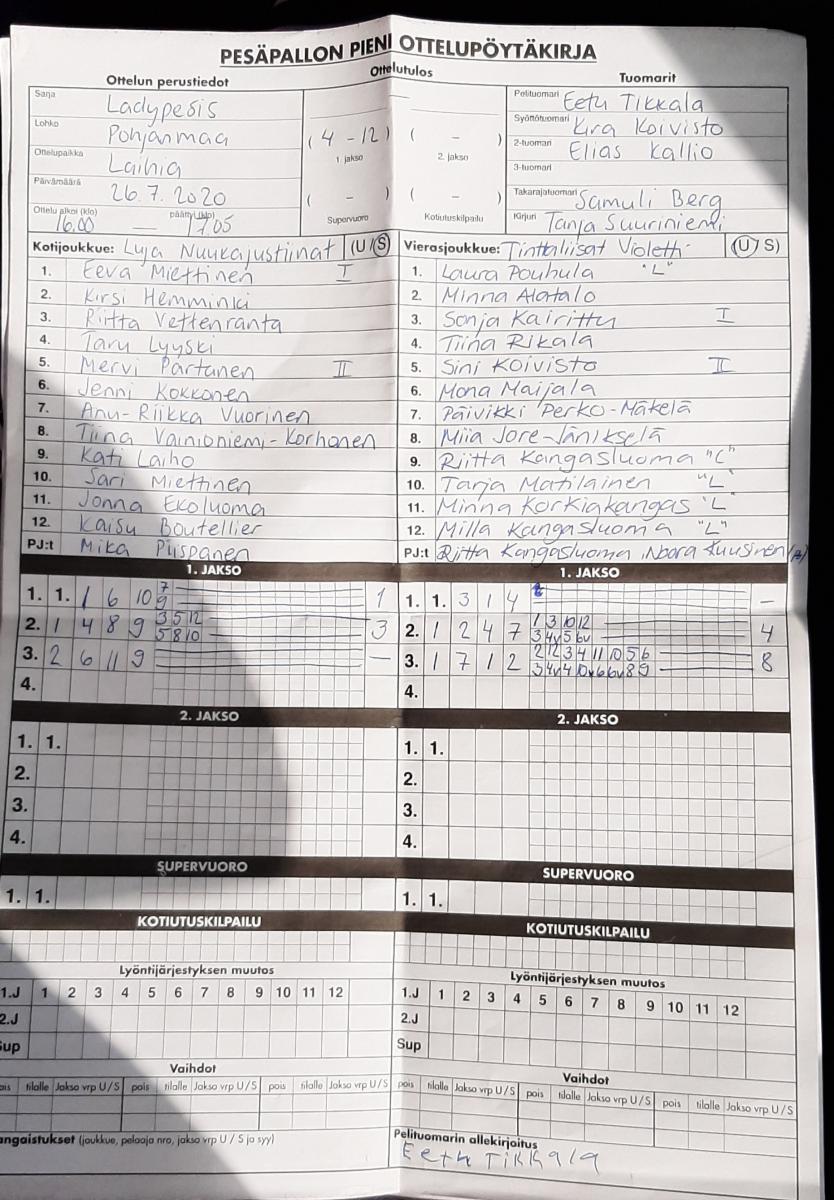 PESÄPALLON PIENI OTTELUPÖYTÄKIRJA
Ottelun perustiedot
Ottelutulos
Tuomarit
Sarja Ladypesis
Lohko Pohjanmaa
Ottelupaikka Laihia
Päivämäärä 26.7.2020
Ottelu alkoi (klo) 16.00 — päättyi (klo) 17.05
( 4 - 12 ) ( - )
1. jakso 2. jakso
( - ) ( - )
Supervuoro Kotiutuskilpailu
Pelituomari Eetu Tikkala
Syöttötuomari Kira Koivisto
2-tuomari Elias Kallio
3-tuomari
Takarajatuomari Samuli Berg
Kirjuri Tanja Suuriniemi
Kotijoukkue: Luja Nuukajustiinat (U/S)
1. Eeva Miettinen I
2. Kirsi Hemminki
3. Riitta Vettenranta
4. Taru Lyyski
5. Mervi Partanen II
6. Jenni Kokkonen
7. Anu-Riikka Vuorinen
8. Tiina Vainioniemi-Korhonen
9. Kati Laiho
10. Sari Miettinen
11. Jonna Ekoluoma
12. Kaisu Boutellier
PJ:t Mika Piispanen
Vierasjoukkue: Tinttaliisat Violetti (U/S)
1. Laura Pouhula "L"
2. Minna Alatalo
3. Sonja Kairittu I
4. Tiina Rikala
5. Sini Koivisto II
6. Mona Maijala
7. Päivikki Perko-Mäkelä
8. Miia Jore-Jänikselä
9. Riitta Kangasluoma "C"
10. Tarja Matilainen "L"
11. Minna Korkiakangas "L"
12. Milla Kangasluoma "L"
PJ:t Riitta Kangasluoma, Noora Kuusinen
1. JAKSO
1. 1. 1 6 10 7 1
9
2. 1 4 8 9 3 5 12 3
5 8 10
3. 2 6 11 9 —
4.
1. JAKSO
1. 1. 3 1 4 —
2. 1 2 4 7 1 3 10 12 4
3 4v 5 6v
3. 1 7 1 2 2 12 3 4 11 10 5 6 8
3 4v 4 10v 6 6v 8 9
4.
2. JAKSO
1. 1.
2.
3.
4.
2. JAKSO
1. 1.
2.
3.
4.
SUPERVUORO
1. 1.
SUPERVUORO
1. 1.
KOTIUTUSKILPAILU
KOTIUTUSKILPAILU
Lyöntijärjestyksen muutos
1.J 1 2 3 4 5 6 7 8 9 10 11 12
2.J
Sup
Lyöntijärjestyksen muutos
1.J 1 2 3 4 5 6 7 8 9 10 11 12
2.J
Sup
Vaihdot
ois tilalle Jakso vrp U/S pois tilalle Jakso vrp U/S pois tilalle Jakso vrp U/S
Vaihdot
pois tilalle Jakso vrp U/S pois tilalle Jakso vrp U/S pois tilalle Jakso vrp U/S
angaistukset (joukkue, pelaaja nro, jakso vrp U / S ja syy)
Pelituomarin allekirjoitus
Eetu Tikkala